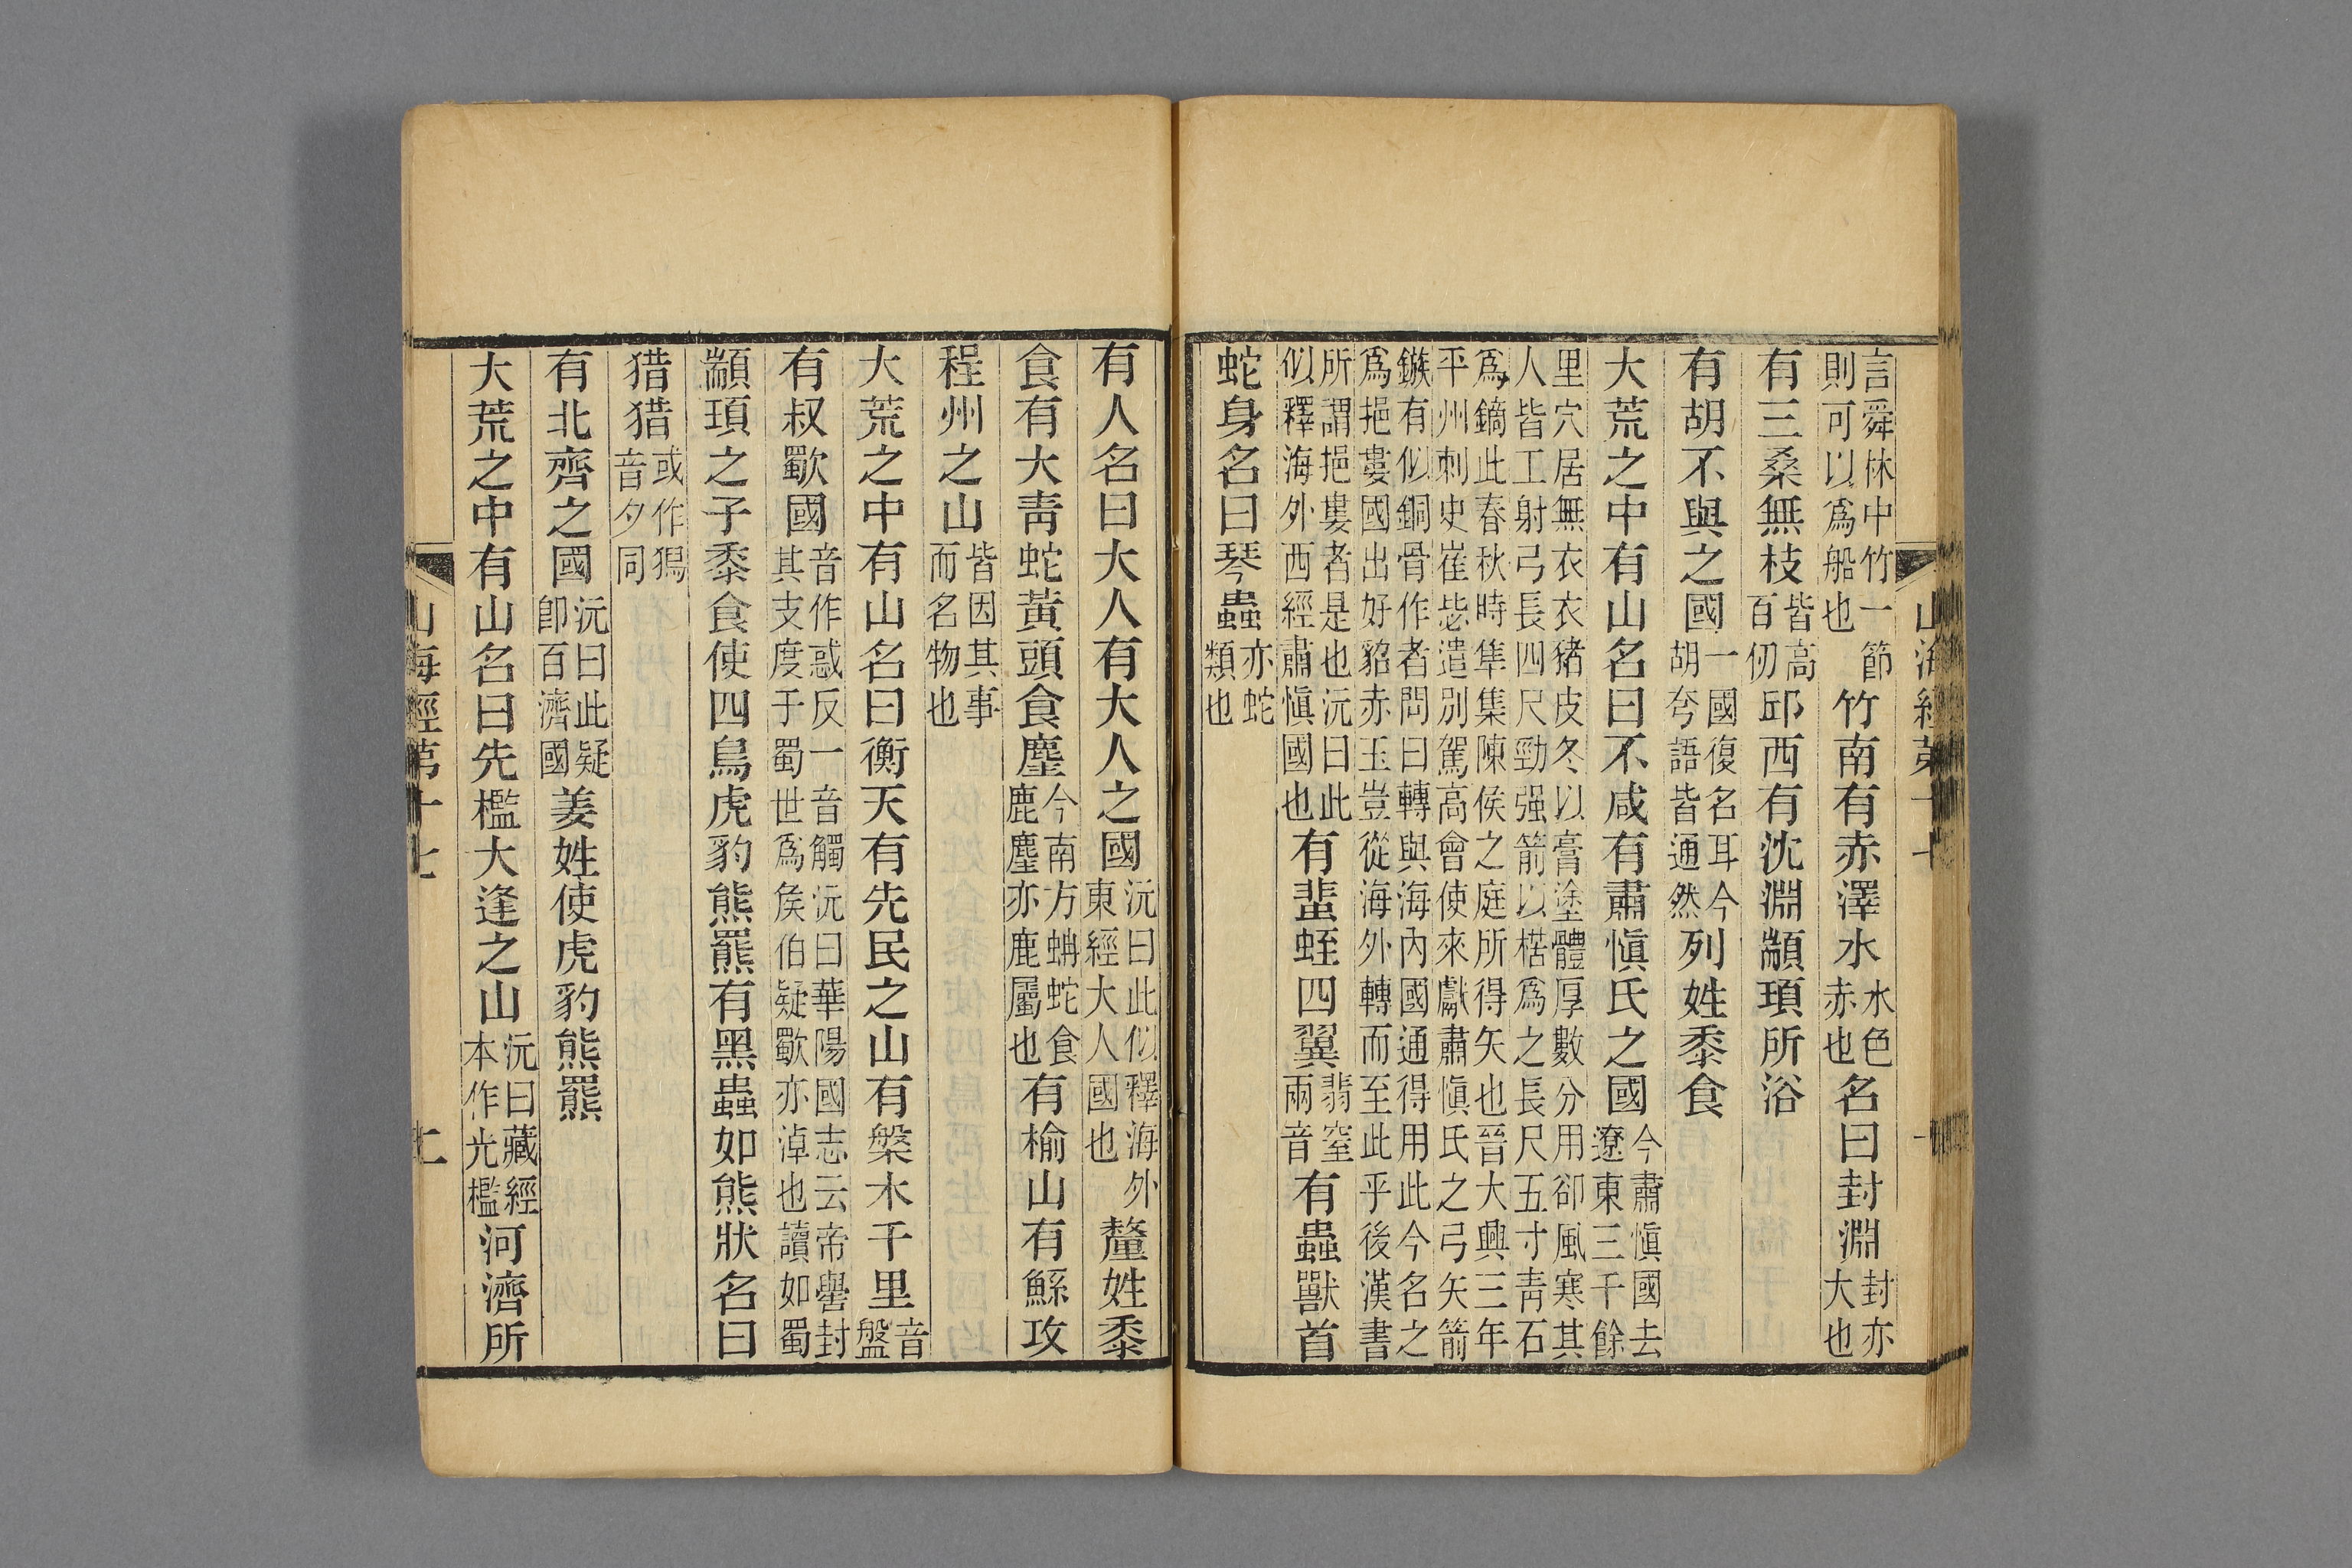 山海經第十七
言舜林中竹一節則可以爲船也竹南有赤澤水水色赤也名曰封淵封亦大也
有三桑無枝皆高百仞邱西有沈淵顓頊所浴
有胡不與之國一國復名耳今胡夸語皆通然列姓黍食
大荒之中有山名曰不咸有肅愼氏之國今肅愼國去遼東三千餘
里穴居無衣衣猪皮冬以膏塗體厚數分用卻風寒其
人皆工射弓長四尺勁强箭以楛爲之長尺五寸靑石
爲鏑此春秋時隼集陳侯之庭所得矢也晉大興三年
平州刺史崔毖遣別駕高會使來獻肅愼氏之弓矢箭
鏃有似銅骨作者問曰轉與海內國通得用此今名之
爲挹婁國出好貂赤玉豈從海外轉而至此乎後漢書
所謂挹婁者是也沅曰此似釋海外西經肅愼國也有蜚蛭四翼翡窒兩音有蟲獸首
蛇身名曰琴蟲亦蛇類也
有人名曰大人有大人之國沅曰此似釋海外東經大人國也釐姓黍
食有大靑蛇黃頭食麈今南方蚺蛇食鹿麈亦鹿屬也有楡山有鯀攻
程州之山皆因其事而名物也
大荒之中有山名曰衡天有先民之山有槃木千里音盤
有叔歜國音作惑反一音觸沅曰華陽國志云帝嚳封其支度于蜀世爲矦伯疑歜亦淖也讀如蜀
顓頊之子黍食使四鳥虎豹熊羆有黑蟲如熊狀名曰
猎猎或作獡音夕同
有北齊之國沅曰此疑卽百濟國姜姓使虎豹熊羆
大荒之中有山名曰先檻大逢之山沅曰藏經本作光檻河濟所
山海經第十七